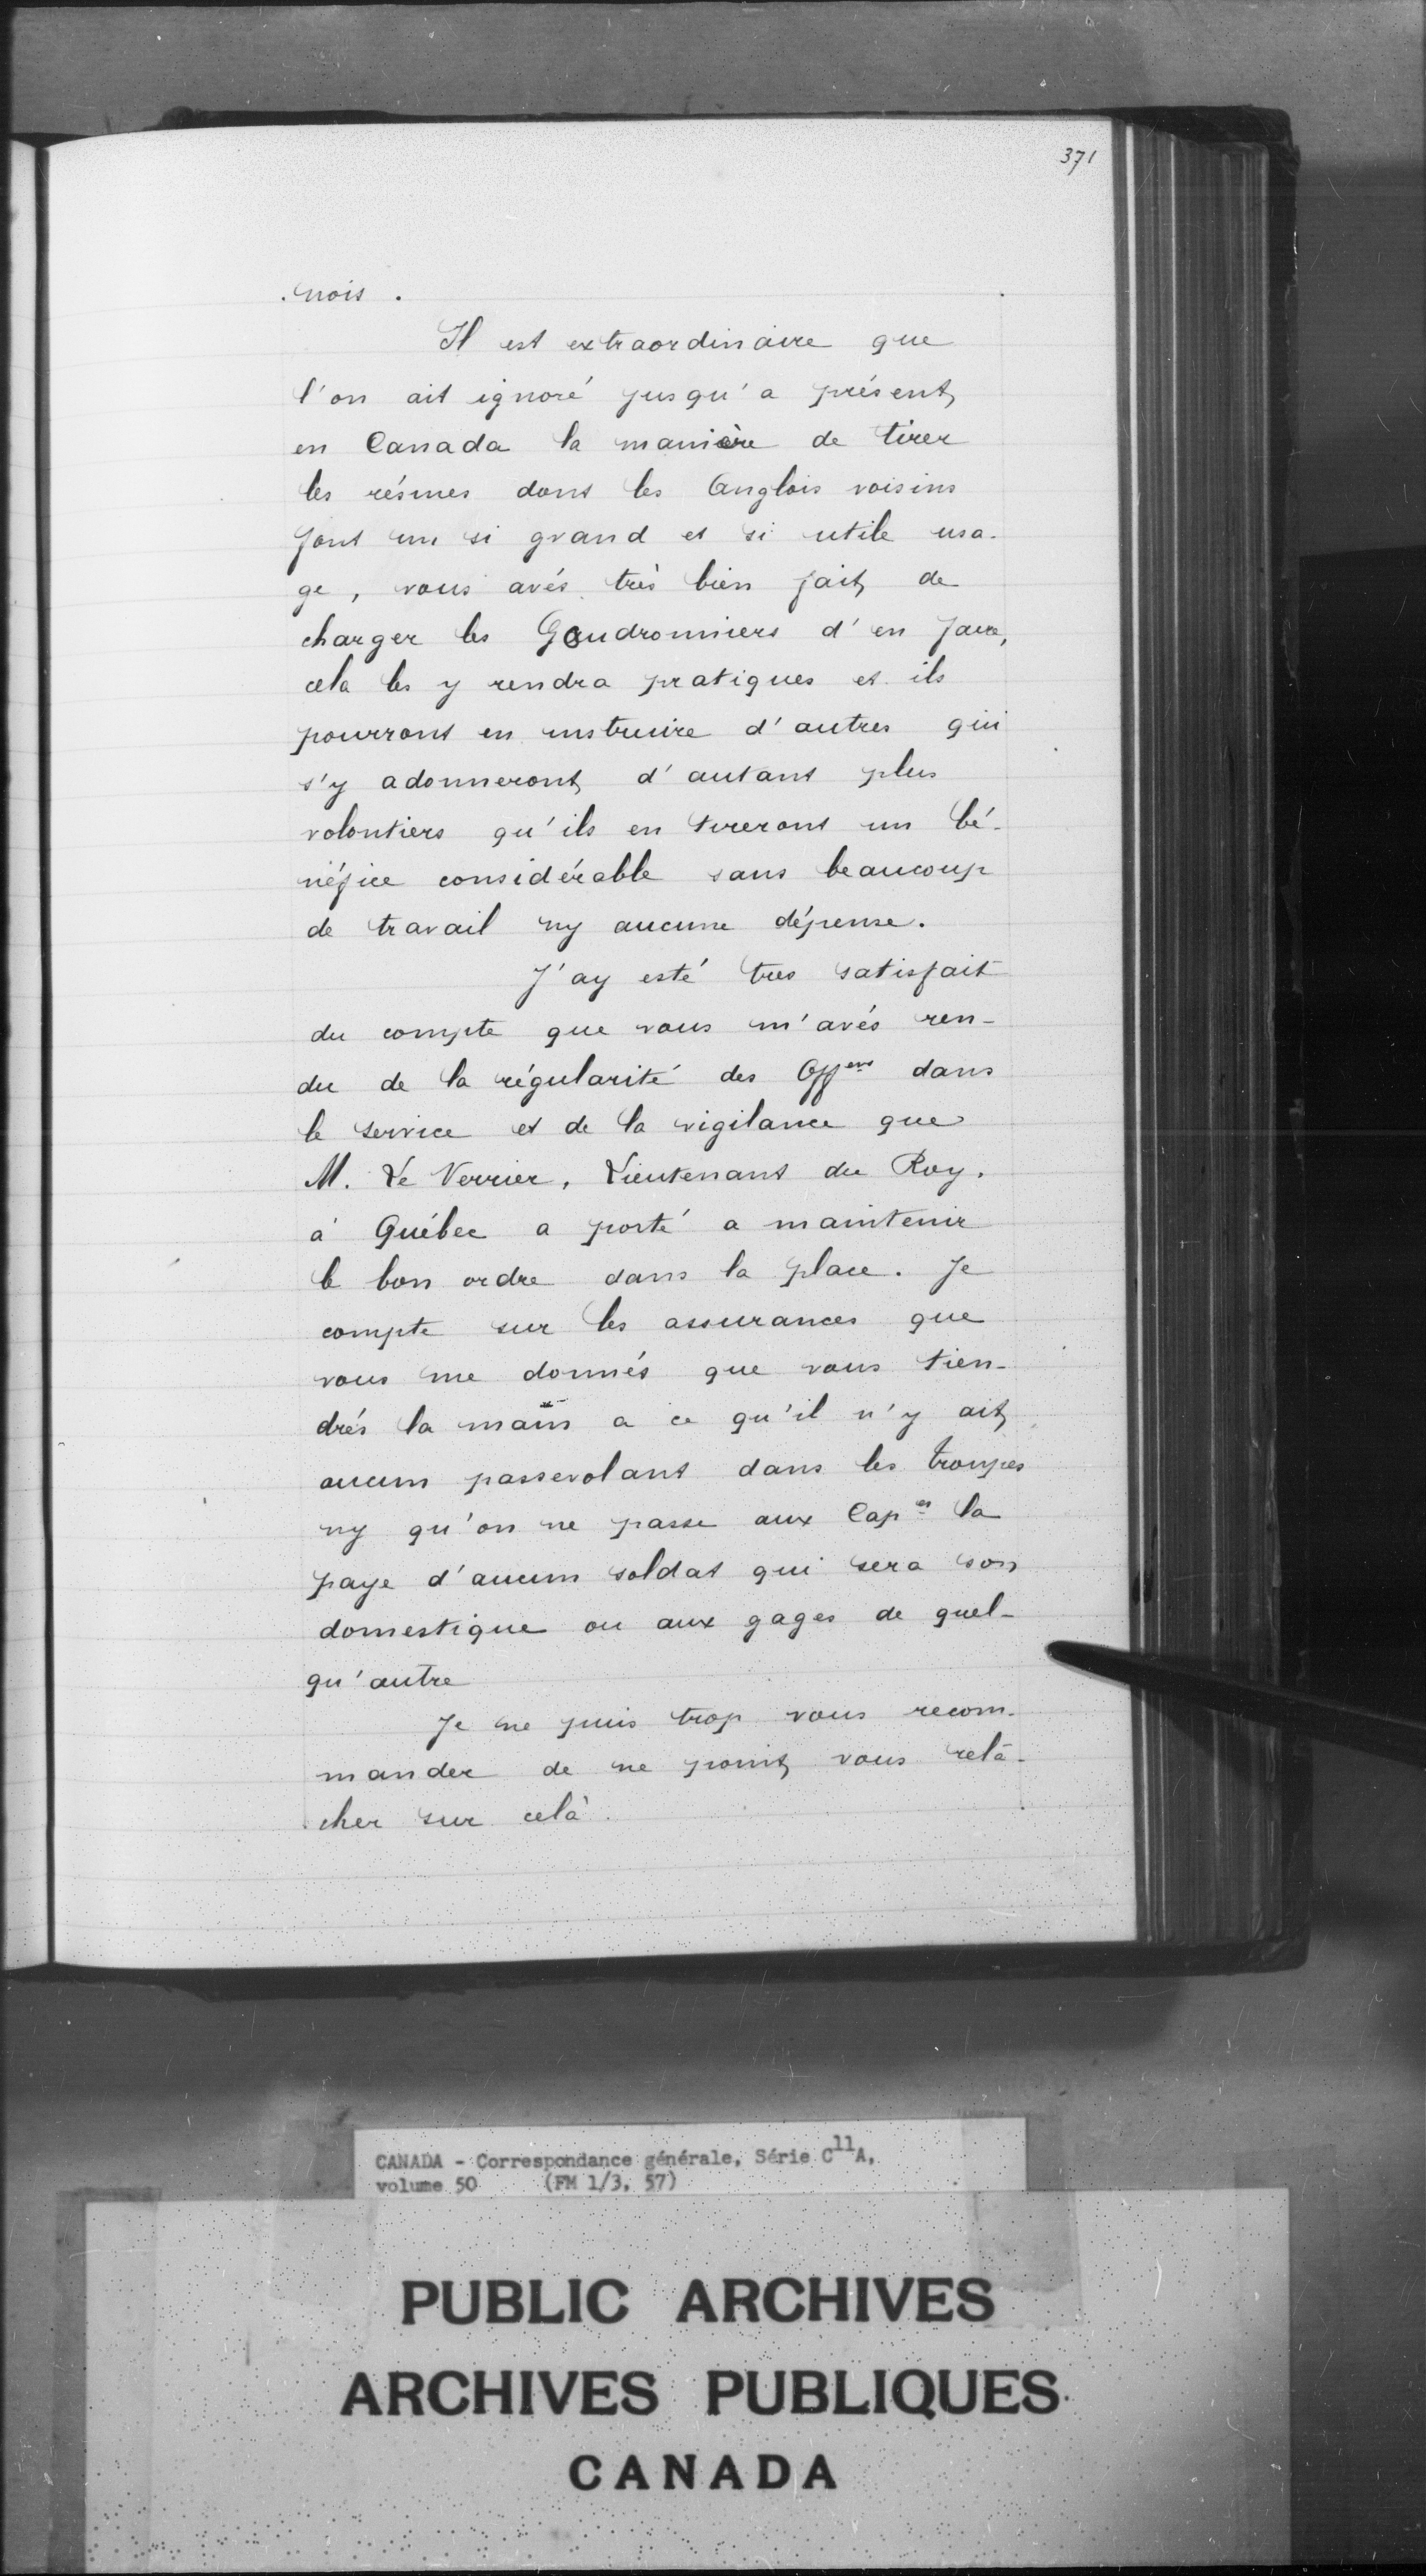 371
nois.
Il est extraordinaire que
l'on ait ignoré jusqu'a présent
en Canada la manière de tirer
les résines dont les Anglois voisins
font un si grand et si utile usa-
ge, vous avés très bien fait de
charger les Goudronniers d'en faire,
cela les y rendra pratiques et ils
pourront en instruire d'autres qui
s'y adonneront d'autant plus
volontiers qu'ils en tireront un bé-
néfice considérable sans beaucoup
de travail ny aucune dépense.
J'ay esté tres satisfait
du compte que vous m'avés ren-
du de la régularité des Off.ers dans
le service et de la vigilance que
M. Le Verrier, Lieutenant du Roy.
à Québec a porté a maintenir
le bon ordre dans la place. Je
compte sur les assurances que
vous me donnés que vous tien-
drés la main a ce qu'il n'y ait
aucun passevolant dans les troupes
ny qu'on ne passe aux Cap.es la
paye d'aucun soldat qui sera son
domestique ou aux gages de quel-
qu'autre
Je ne puis trop vous recom-
mander de ne point vous relâ-
cher sur celà.
CANADA - Correspondance générale, Série C11A,
volume 50 (FM 1/3, 57)
PUBLIC ARCHIVES
ARCHIVES PUBLIQUES
CANADA